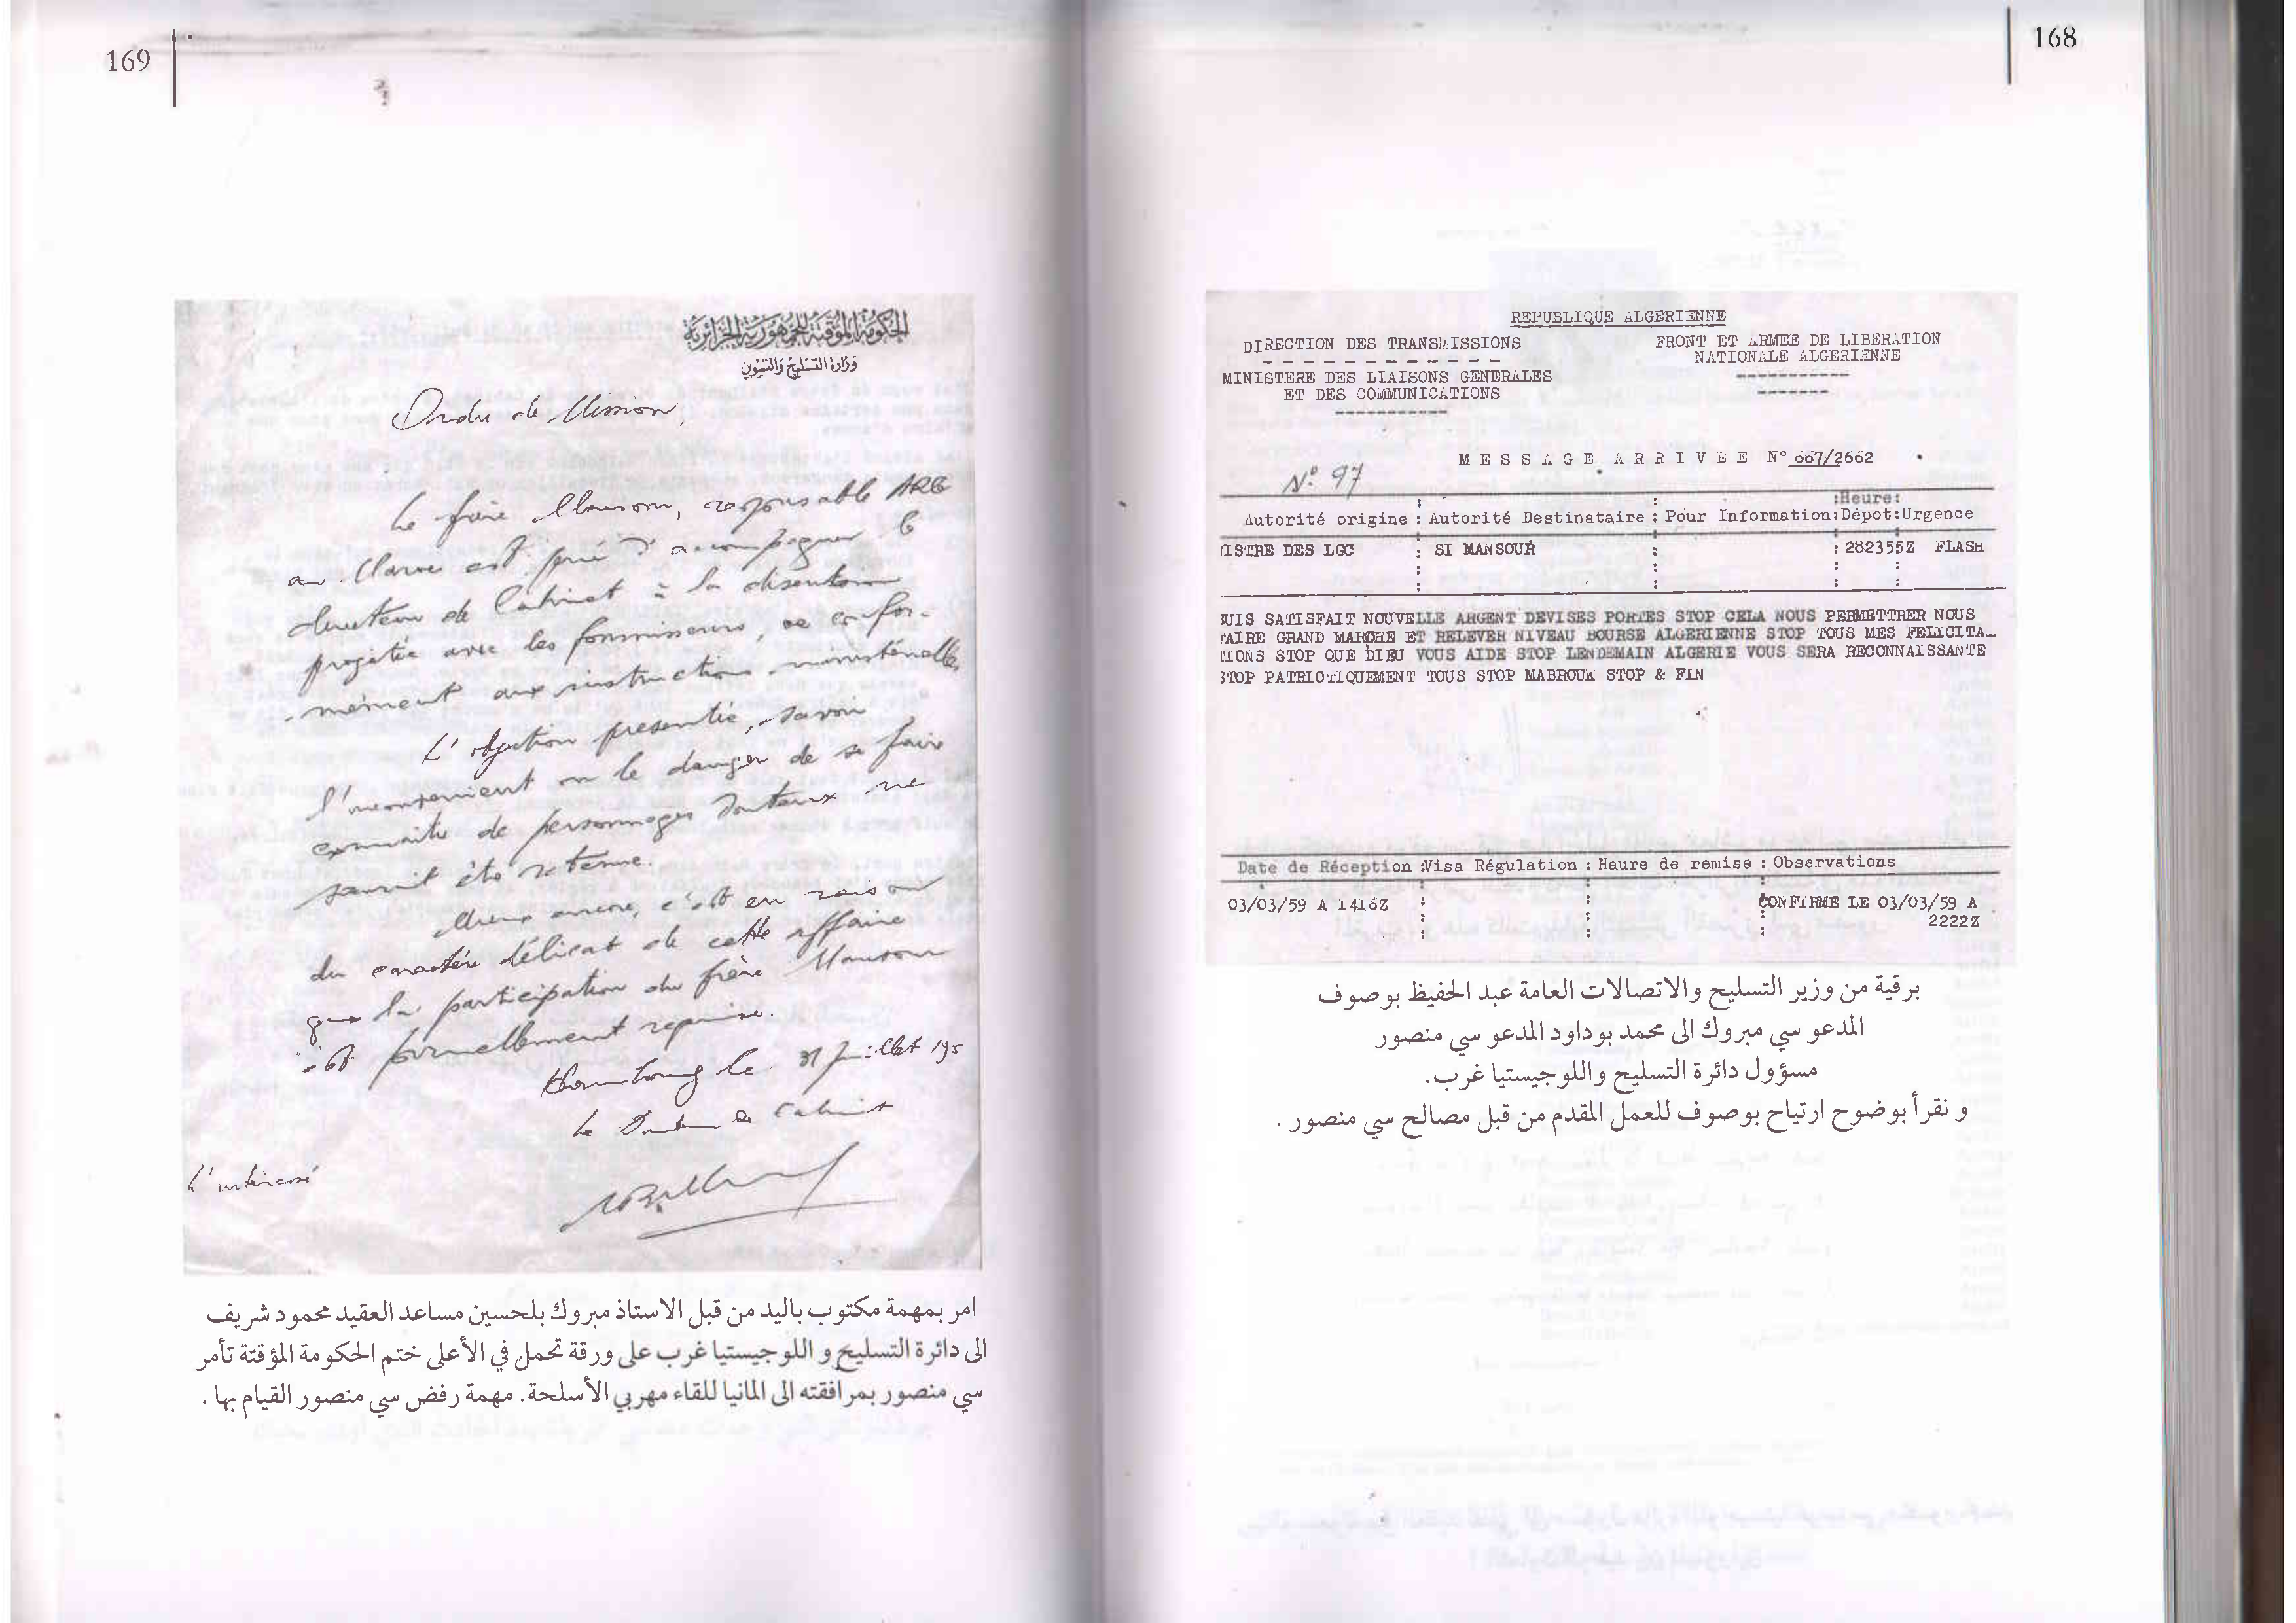 168
REPUBLIQUE ALGERIENNE
DIRECTION DES TRANSMISSIONS
MINISTERE DES LIAISONS GENERALES
ET DES COMMUNICATIONS
FRONT ET ARMEE DE LIBERATION
NATIONALE ALGERIENNE
MESSAGE ARRIVEE N° 667/2662
N° 97
Autorité origine : Autorité Destinataire : Pour Information :Heure: Dépot:Urgence
ISTRE DES LGC : SI MANSOUR : : 282355Z FLASH
UIS SATISFAIT NOUVELLE ARGENT DEVISES PORTES STOP CELA NOUS PERMETTRER NOUS
AIRE GRAND MARCHE ET RELEVER NIVEAU BOURSE ALGERIENNE STOP TOUS MES FELICITA_
IONS STOP QUE DIEU VOUS AIDE STOP LENDEMAIN ALGERIE VOUS SERA RECONNAISSANTE
STOP PATRIOTIQUEMENT TOUS STOP MABROUK STOP & FIN
Date de Réception :Visa Régulation : Haure de remise : Observations
03/03/59 A 1416Z : : : CONFIRME LE 03/03/59 A
2222Z
برقية من وزير التسليح والاتصالات العامة عبد الحفيظ بوصوف
المدعو سي مبروك الى محمد بوداود المدعو سي منصور
مسؤول دائرة التسليح واللوجيستيا غرب.
و نقرأ بوضوح ارتياح بوصوف للعمل المقدم من قبل مصالح سي منصور .
169
الحكومة المؤقتة للجمهورية الجزائرية
وزارة التسليح والتموين
Ordre de Mission,
Le frère Mansour, responsable ARG
au Maroc est prié d'accompagner le
directeur de Cabinet à la discussion
projetée avec les fournisseurs, ce confor-
-mément aux instructions ministérielles,
L'objection présentée, savoir
l'inconvenient ou le danger de se faire
connaitre de personnages douteux ne
saurait être retenue.
Mieux encore, c'est en raison
du caractère délicat de cette affaire
que la participation du frère Mansour
est formellement requise.
Hambourg le 31 Juillet 195
Le Directeur de Cabinet
L'intéressé
امر بمهمة مكتوب باليد من قبل الاستاذ مبروك بلحسين مساعد العقيد محمود شريف
الى دائرة التسليح و اللوجيستيا غرب على ورقة تحمل في الأعلى ختم الحكومة المؤقتة تأمر
سي منصور بمرافقته الى المانيا للقاء مهربي الأسلحة. مهمة رفض سي منصور القيام بها .